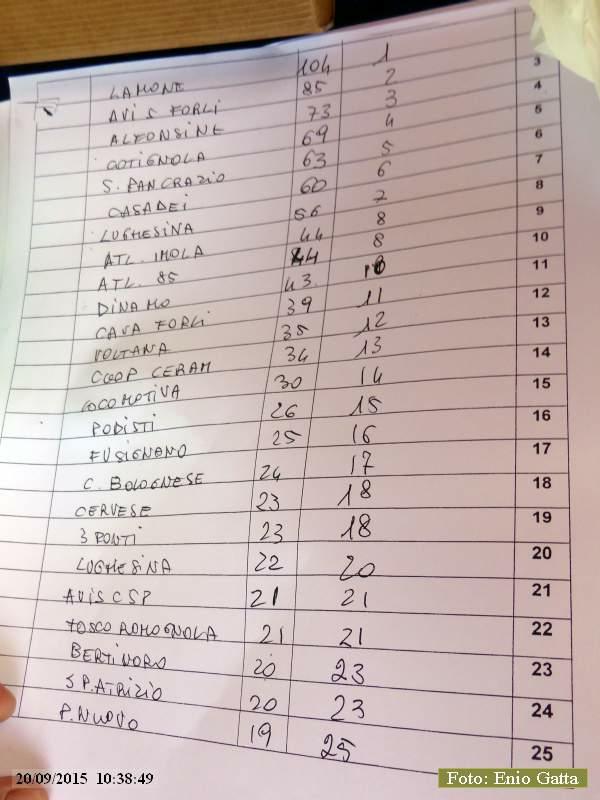 LAMONE 104 1
AVIS FORLI 85 2
ALFONSINE 73 3 3
COTIGNOLA 69 4 4
S. PANCRAZIO 63 5 5
CASADEI 60 6 6
LUGHESINA 56 7 7
ATL. IMOLA 44 8 8
ATL. 85 44 8 9
DINAMO 43 10 10
CAVA FORLI 39 11 11
VOLTANA 35 12 12
COOP CERAM 34 13 13
LOCOMOTIVA 30 14 14
PODISTI 26 15 15
FUSIGNANO 25 16 16
C. BOLOGNESE 24 17 17
CERVESE 23 18 18
3 PONTI 23 18 19
LUGHESINA 22 20 20
AVIS CSP 21 21 21
TOSCO ROMOGNOLA 21 21 22
BERTINORO 20 23 23
S PATRIZIO 20 23 24
P. NUOVO 19 25 25
20/09/2015 10:38:49
Foto: Enio Gatta